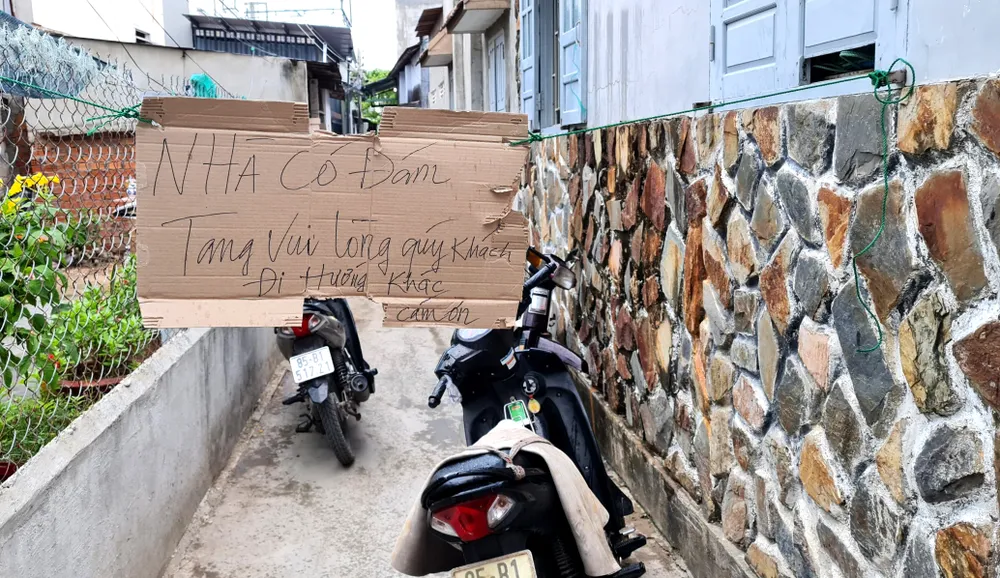 NHÀ CÓ Đám
Tang Vui lòng quý khách
Đi Hướng Khác
cảm ơn
85-B1
85-B1